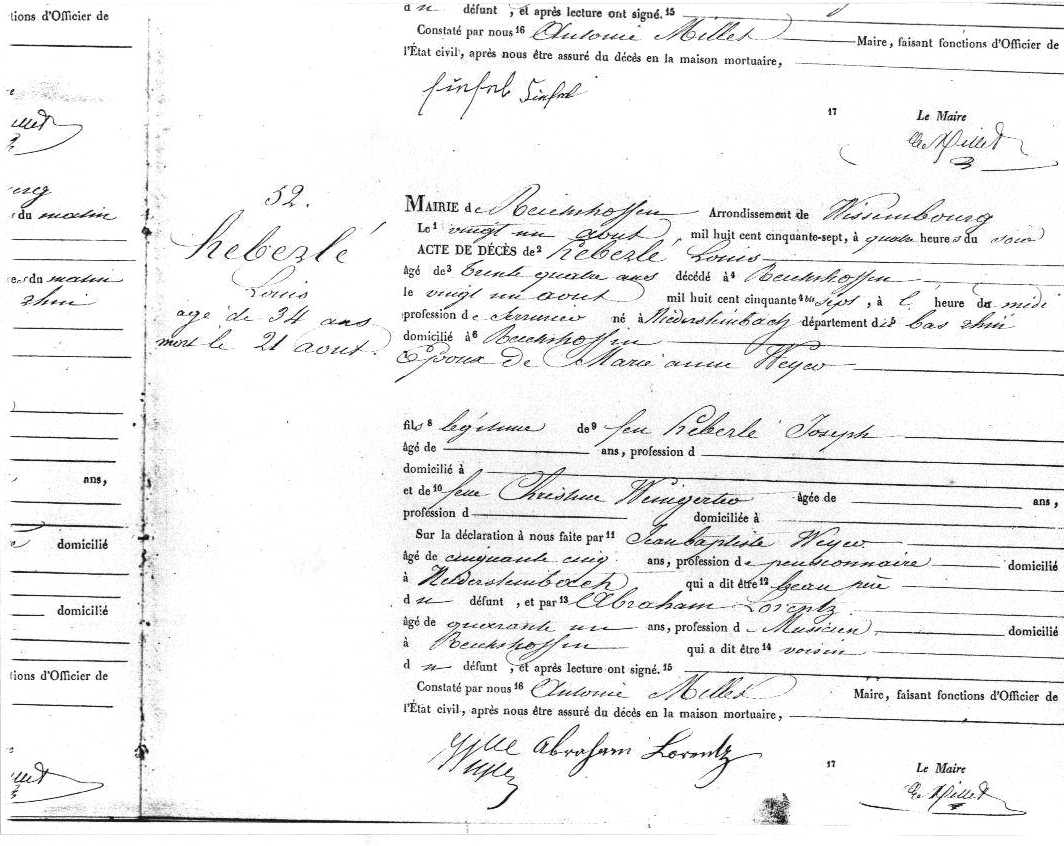 d u défunt, et après lecture ont signé. 15
Constaté par nous 16 Antoine Millet Maire, faisant fonctions d'Officier de
l'État civil, après nous être assuré du décès en la maison mortuaire,
17 Le Maire
Millet
tions d'Officier de
du matin
du matin
rhin
ans,
domicilié
domicilié
tions d'Officier de
52.
Keberlé
Louis
agé de 34 ans
mort le 21 aout.
MAIRIE de Reichshoffen Arrondissement de Wissembourg
Le 1 vingt un aout mil huit cent cinquante-sept, à quatre heures du soir
ACTE DE DÉCÈS de 2 Keberlé Louis
âgé de 3 trente quatre ans décédé à 4 Reichshoffen
le vingt un aout mil huit cent cinquante 4 bis sept, à l' heure du midi
profession de Serrurier né à Niedersteinbach département d 5 bas rhin
domicilié à 6 Reichshoffen
Epoux de Marie anne Weyer
fils 8 légitime de 9 feu Keberlé Joseph
âgé de ans, profession d
domicilié à
et de 10 feue Christine âgée de ans,
profession d domiciliée à
Sur la déclaration à nous faite par 11 Jean baptiste Weyer
âgé de cinquante cinq ans, profession de pensionnaire domicilié
à Niedersteinbach qui a dit être 12 beau père
d u défunt, et par 13 Abraham Lorentz
âgé de quarante un ans, profession d Musicien domicilié
à Reichshoffen qui a dit être 14 voisin
d u défunt, et après lecture ont signé. 15
Constaté par nous 16 Antoine Millet Maire, faisant fonctions d'Officier de
l'État civil, après nous être assuré du décès en la maison mortuaire,
Abraham Lorentz
17 Le Maire
Millet